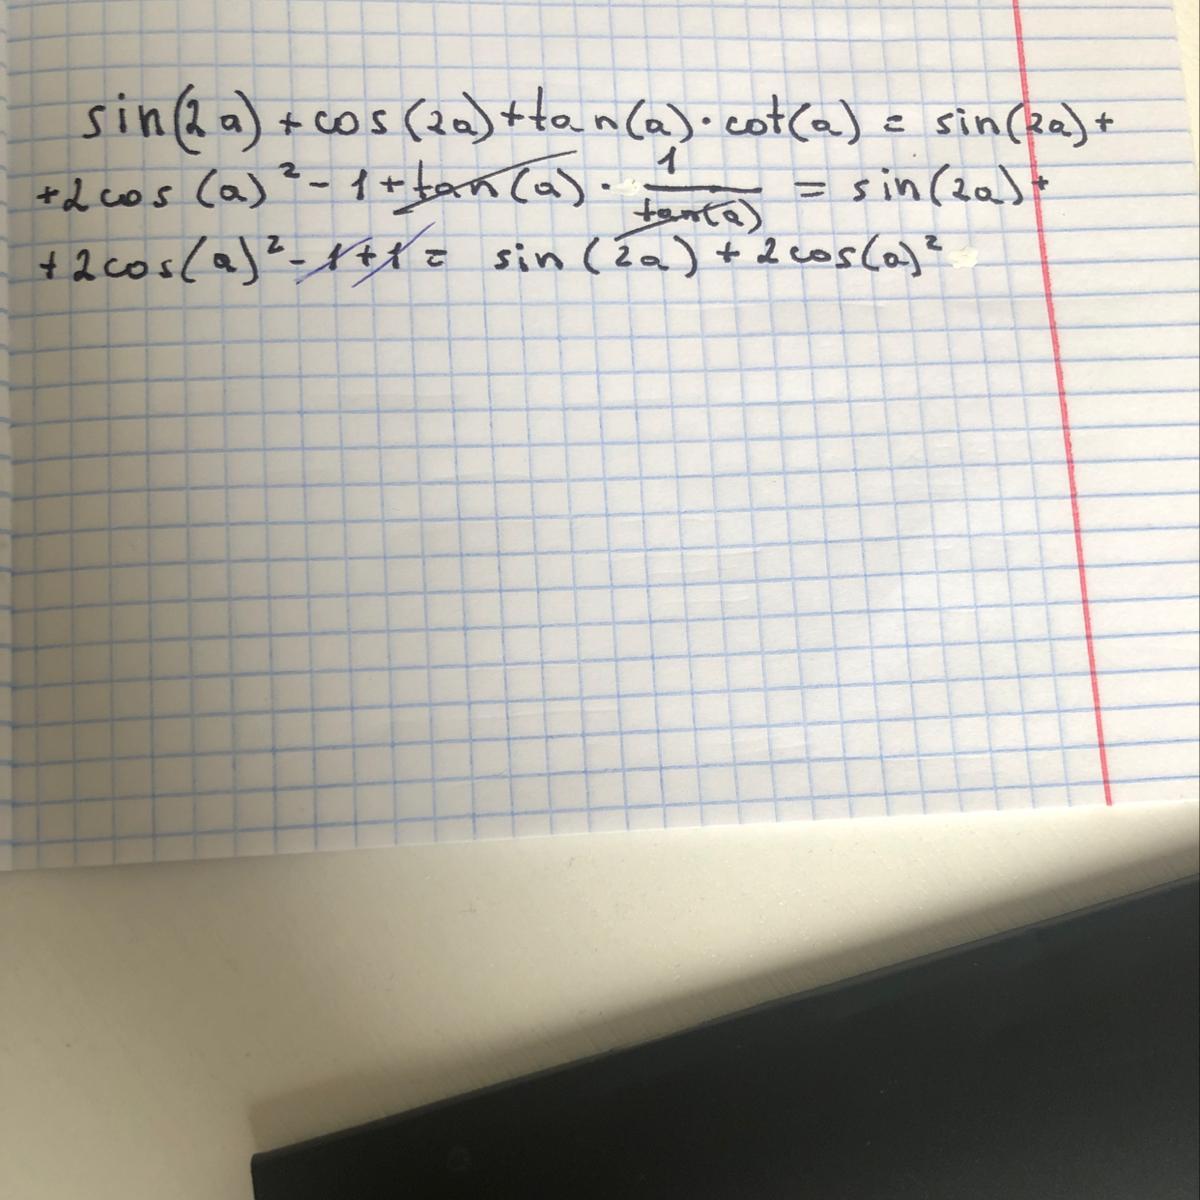 sin(2a) + cos(2a) + tan(a) · cot(a) = sin(2a) +
+ 2cos(a)² - 1 + tan(a) · 1/tan(a) = sin(2a) +
+ 2cos(a)² - 1 + 1 = sin(2a) + 2cos(a)²